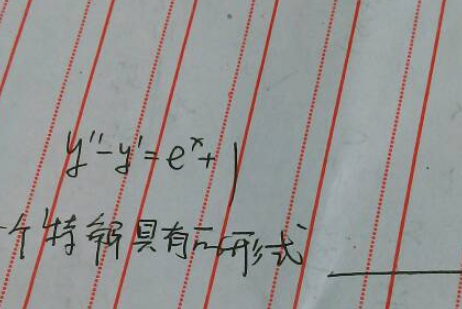 y''-y'=e^x+1
个特解具有的形式